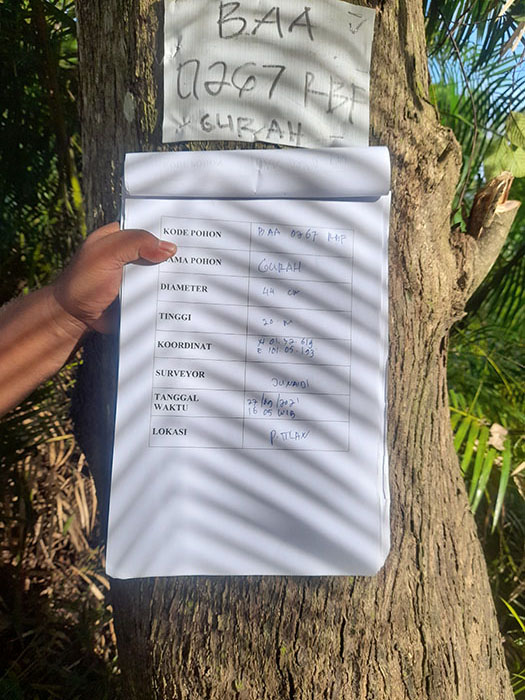 BAA
0267 RBF
GURAH
KODE POHON BAA 0267 RBF
NAMA POHON GURAH
DIAMETER 44 cm
TINGGI 20 M
KOORDINAT
SURVEYOR JUNAIDI
TANGGAL
WAKTU 16 05 WIB
LOKASI